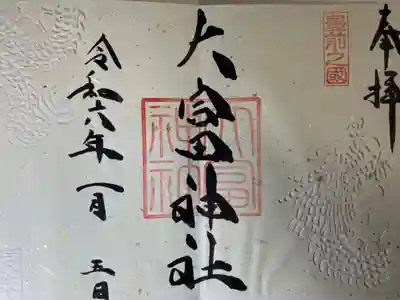 奉拝
豊前之國
大富神社
令和六年一月五日